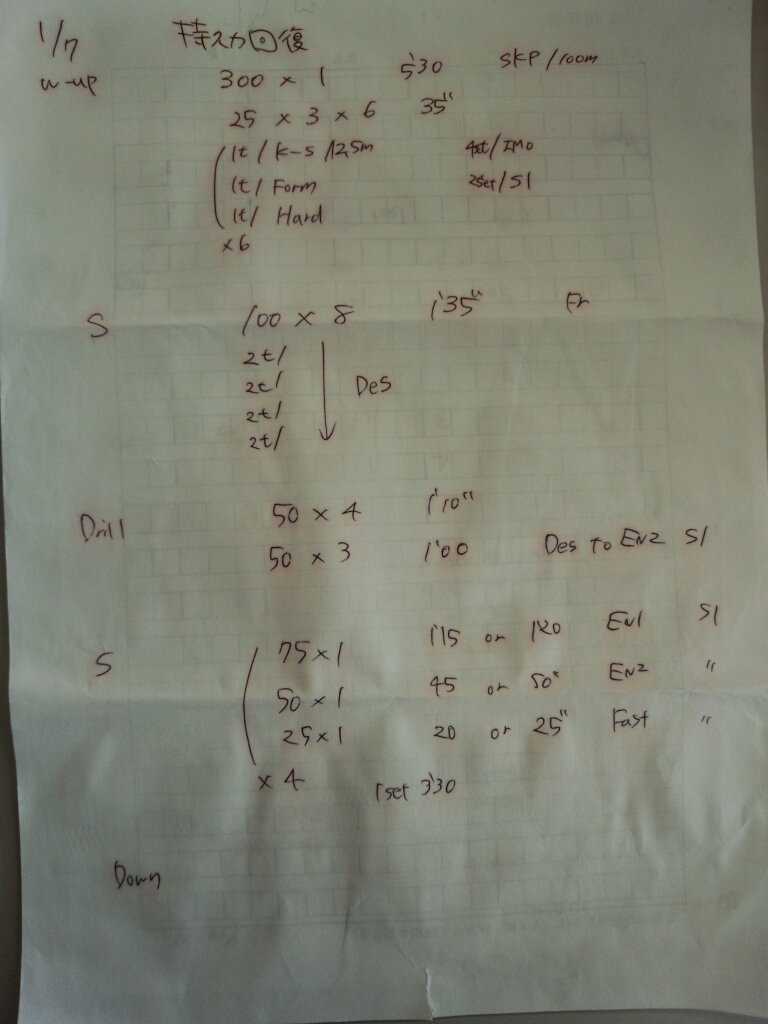 1/7 持久力回復
w-up 300 × 1 5'30 SKP/room
25 × 3 × 6 35"
1t/ K-S /12.5m 4set/IMO
1t/ Form 2set/S1
1t/ Hard
×6
S 100 × 8 1'35" Fr
2t/
2t/ Des
2t/
2t/
Drill 50 × 4 1'10"
50 × 3 1'00 Des to EN2 S1
S 75×1 1'15 or 1'20 EN1 S1
50×1 45 or 50" EN2 "
25×1 20 or 25" Fast "
× 4 1set 3'30
Down